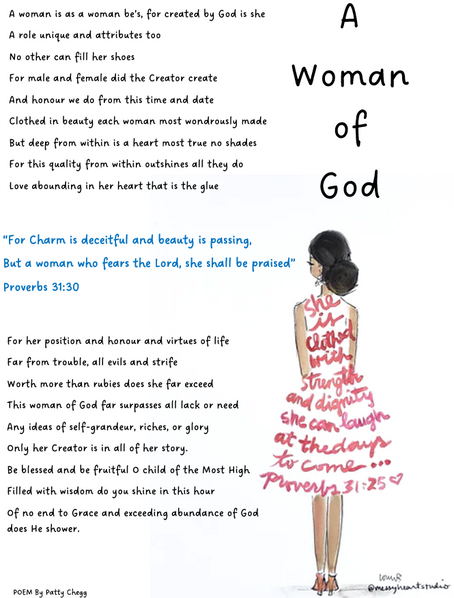 A woman is as a woman be's, for created by God is she
A role unique and attributes too
No other can fill her shoes
For male and female did the Creator create
And honour we do from this time and date
Clothed in beauty each woman most wondrously made
But deep from within is a heart most true no shades
For this quality from within outshines all they do
Love abounding in her heart that is the glue
A
Woman
of
God
"For Charm is deceitful and beauty is passing,
But a woman who fears the Lord, she shall be praised"
Proverbs 31:30
For her position and honour and virtues of life
Far from trouble, all evils and strife
Worth more than rubies does she far exceed
This woman of God far surpasses all lack or need
Any ideas of self-grandeur, riches, or glory
Only her Creator is in all of her story.
Be blessed and be fruitful O child of the Most High
Filled with wisdom do you shine in this hour
Of no end to Grace and exceeding abundance of God
does He shower.
she
is
clothed
with
strength
and dignity
she can laugh
at the days
to come...
Proverbs 31:25
@messyheartstudio
POEM By Patty Chegg